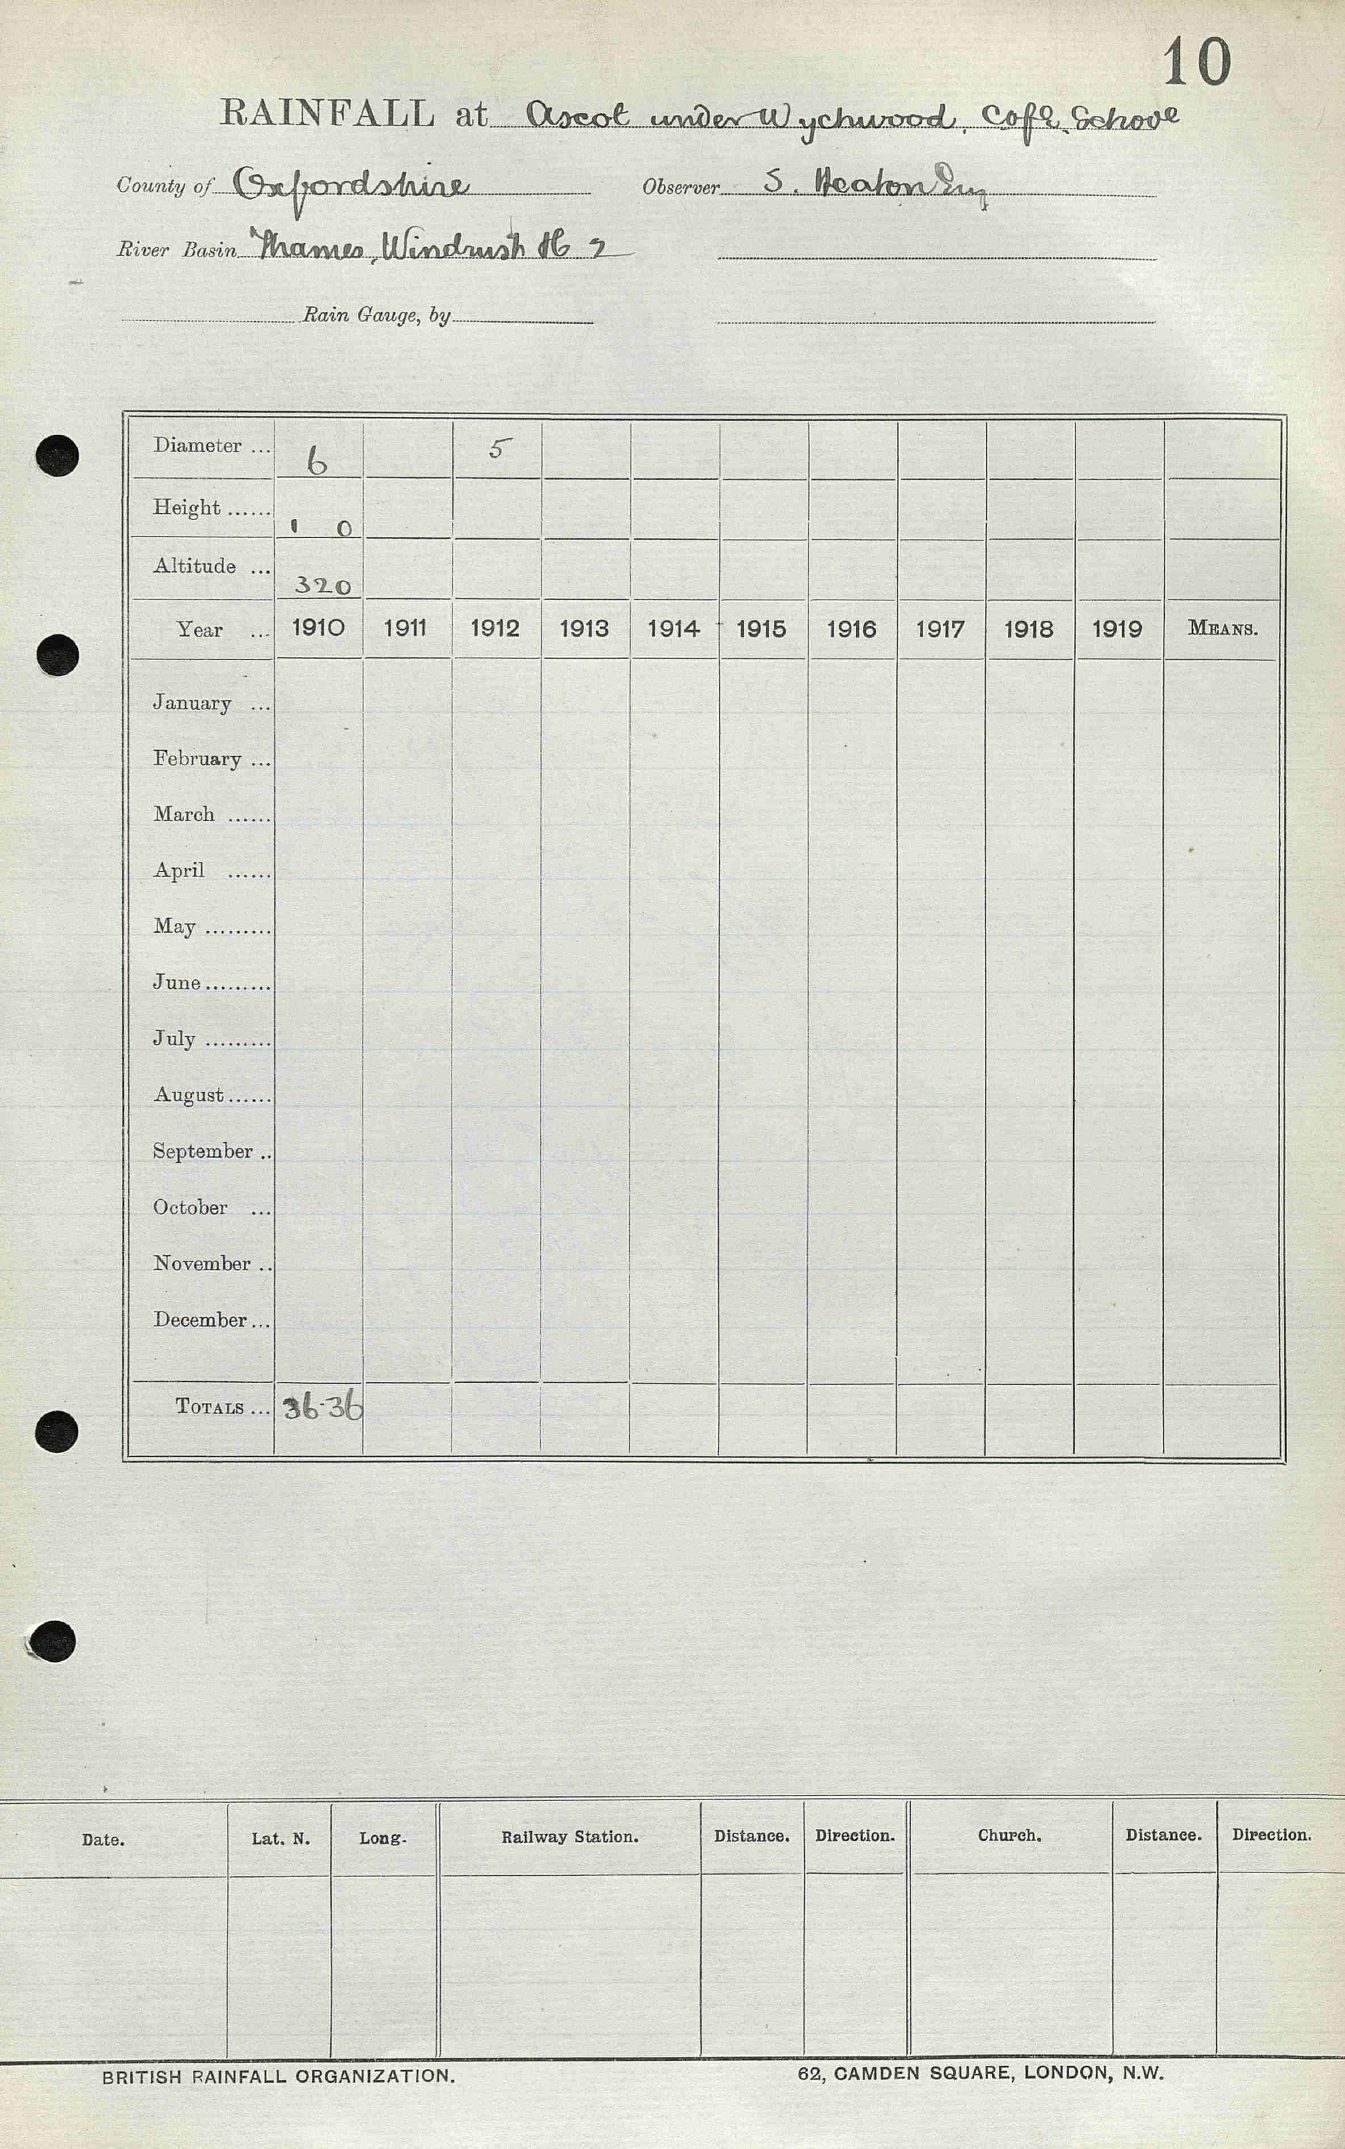 10
RAINFALL at Ascot under Wychwood, CofE. School
County of Oxfordshire Observer S. Heaton Esq
River Basin Thames, Windrush H 2
Rain Gauge, by
Diameter ... 6 5
Height ...... 1 0
Altitude ... 320
Year ... 1910 1911 1912 1913 1914 1915 1916 1917 1918 1919 MEANS.
January ...
February ...
March ......
April ......
May .........
June .........
July .........
August ......
September ..
October ...
November ..
December ...
TOTALS ... 36.36
Date. Lat. N. Long. Railway Station. Distance. Direction. Church. Distance. Direction.
BRITISH RAINFALL ORGANIZATION. 62, CAMDEN SQUARE, LONDON, N.W.